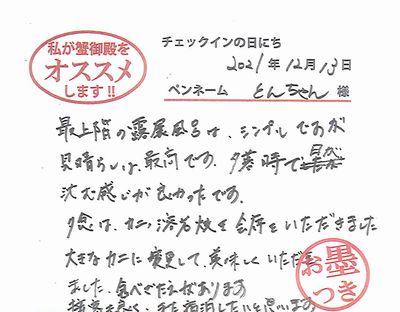 私が蟹御殿を
オススメ
します!!
チェックインの日にち
2021年12月13日
ペンネーム とんちゃん 様
最上階の露展風呂は、シンプルですが
見晴らしは最高です。夕暮時で
沈む感じが良かったです。
夕食は、カニの溶岩焼き会席をいただきました
大きなカニに変更して、美味しくいただき
ました。食べごたえあります
接客も良く、また宿泊したいと思います
お墨
つき